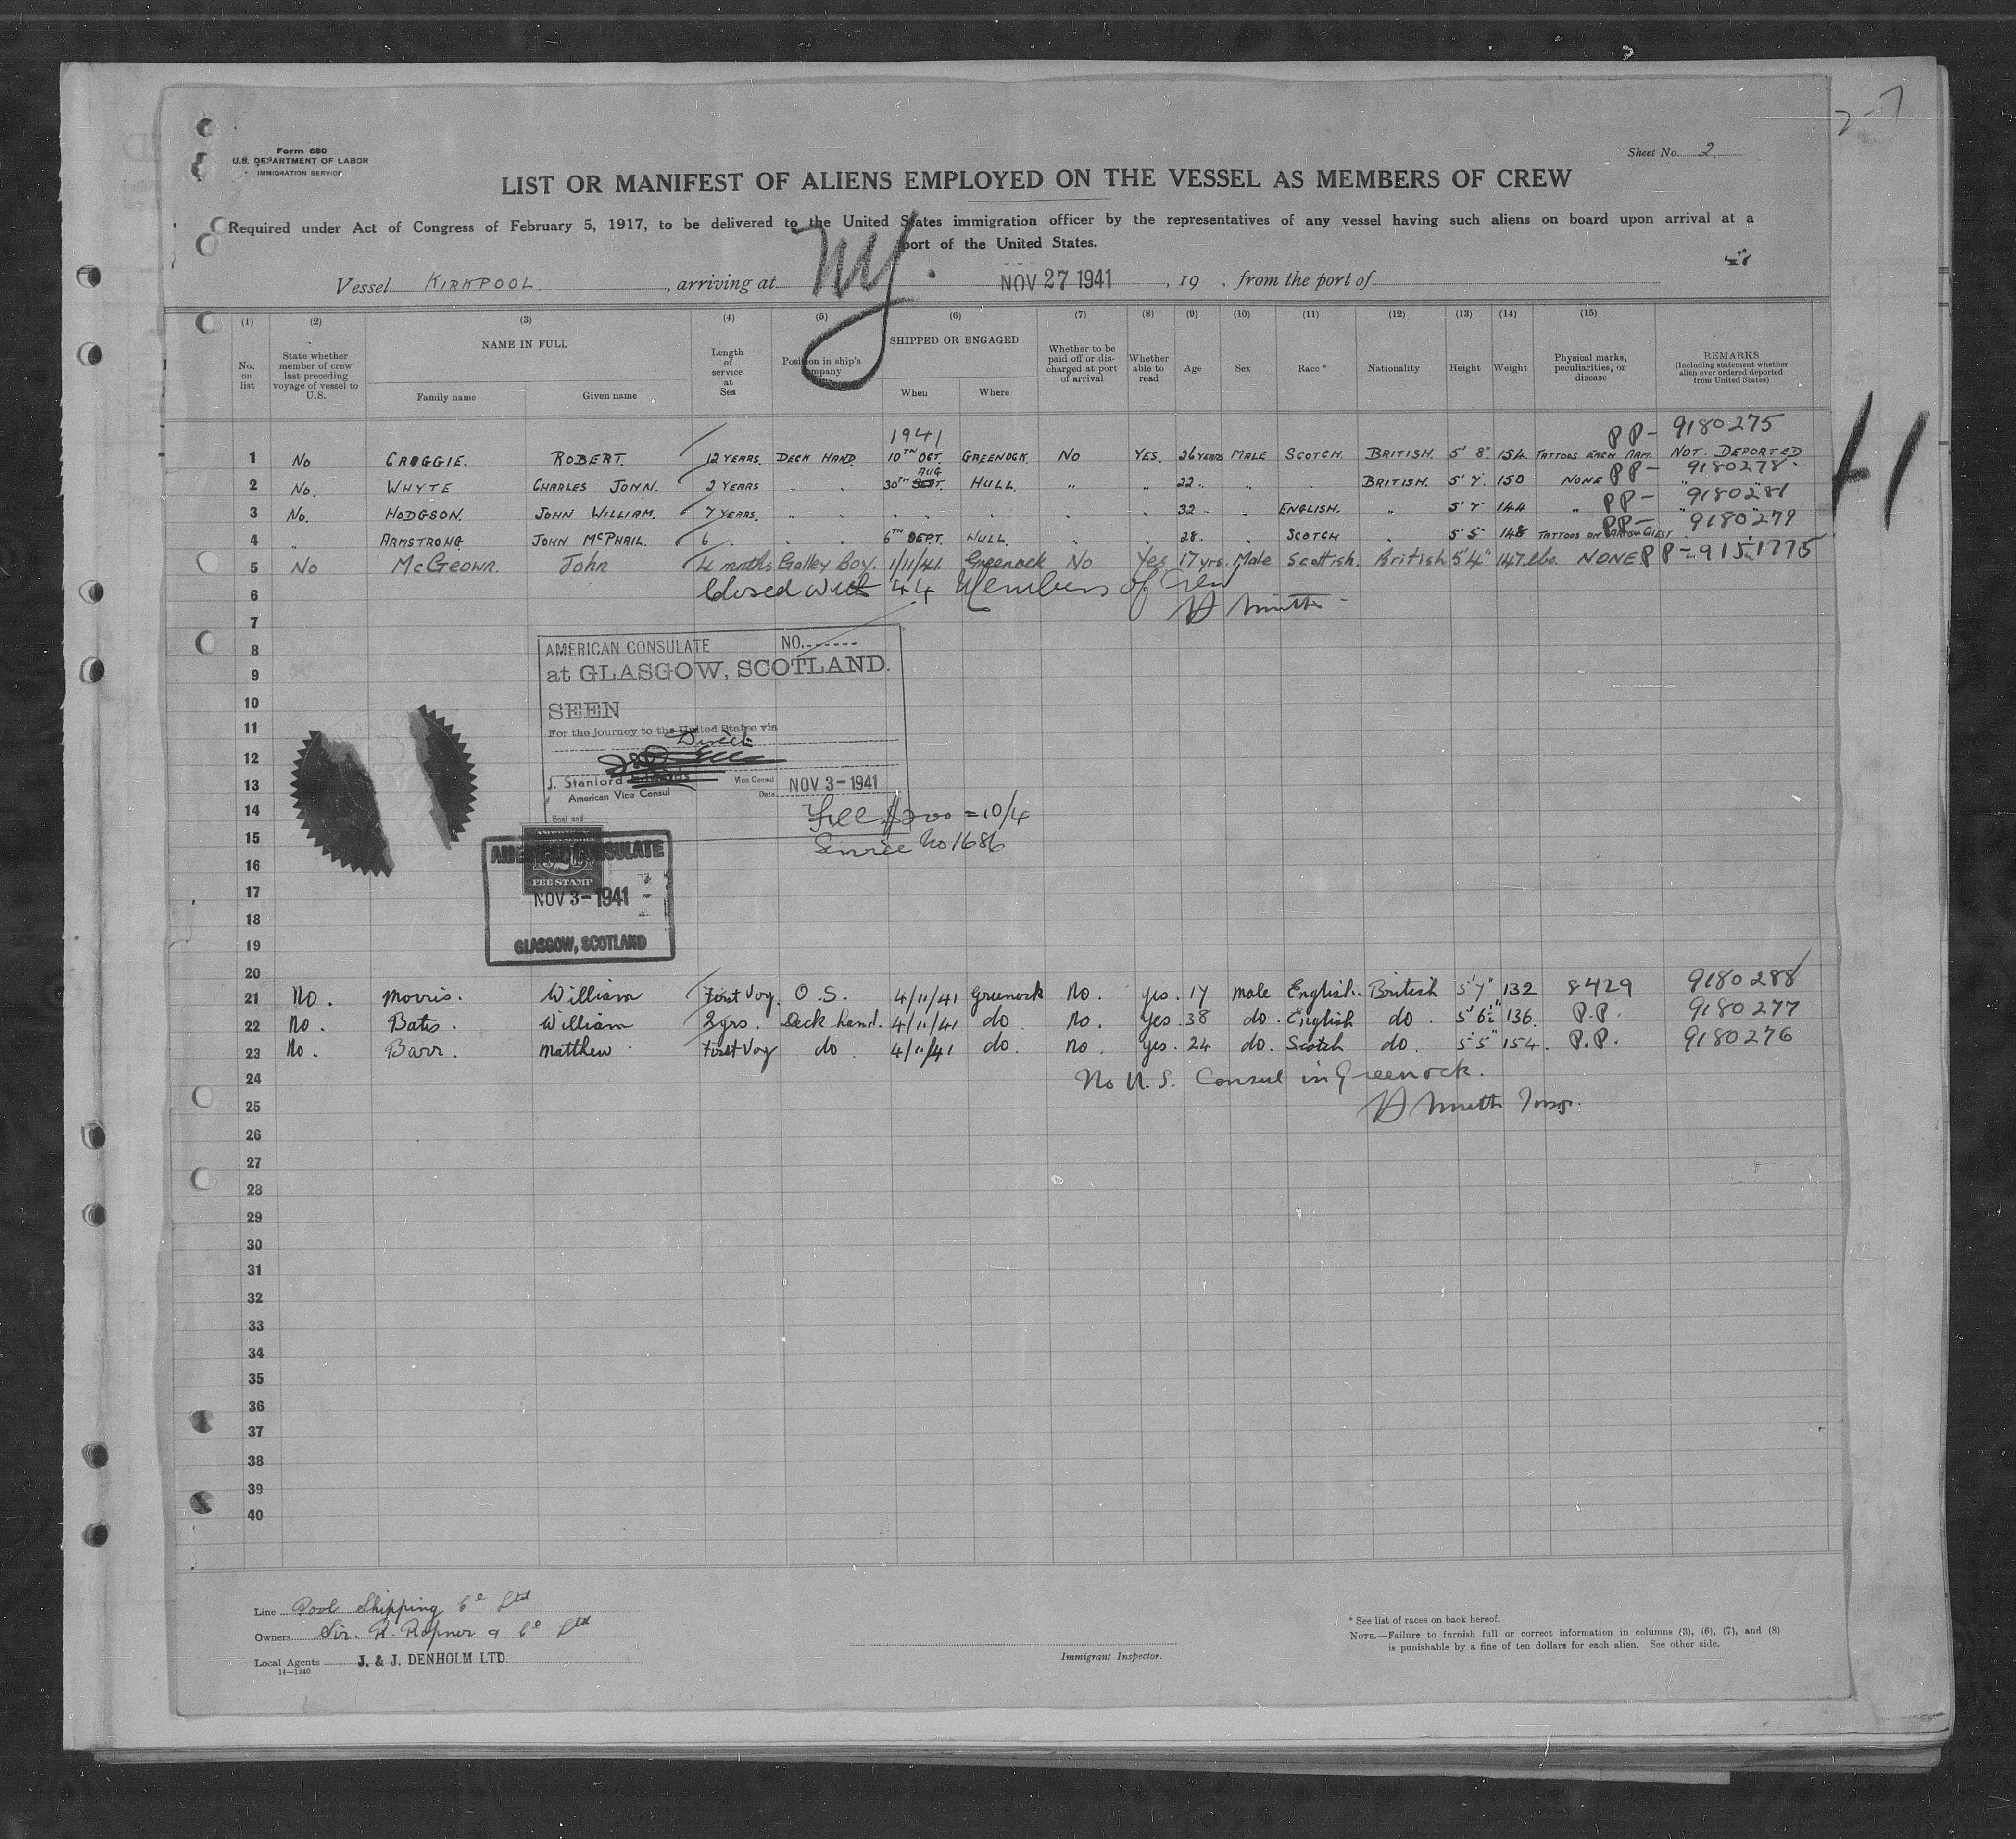 2-7
Form 680
U.S. DEPARTMENT OF LABOR
IMMIGRATION SERVICE
Sheet No. 2
LIST OR MANIFEST OF ALIENS EMPLOYED ON THE VESSEL AS MEMBERS OF CREW
Required under Act of Congress of February 5, 1917, to be delivered to the United States immigration officer by the representatives of any vessel having such aliens on board upon arrival at a
port of the United States.
Vessel KIRKPOOL. , arriving at NY. NOV 27 1941 , 19 , from the port of
(1) (2) (3) (4) (5) (6) (7) (8) (9) (10) (11) (12) (13) (14) (15)
No. on list
State whether member of crew last preceding voyage of vessel to U.S.
NAME IN FULL
Family name
Given name
Length of service at Sea
Position in ship's company
SHIPPED OR ENGAGED
When
Where
Whether to be paid off or discharged at port of arrival
Whether able to read
Age
Sex
Race *
Nationality
Height
Weight
Physical marks, peculiarities, or disease
REMARKS
(Including statement whether alien ever ordered deported from United States)
1941 PP- 9180275
1 No CROGGIE. ROBERT. 12 YEARS. DECK HAND. 10TH OCT. GREENOCK NO YES. 26 YEARS MALE SCOTCH. BRITISH. 5' 8" 154. TATTOOS EACH ARM. NOT. DEPORTED
2 No. WHYTE CHARLES JOHN. 2 YEARS " " 30TH AUG HULL. " " 22 " " " BRITISH. 5' 7" 150 NONE PP- 9180278
3 No. HODGSON. JOHN WILLIAM. 7 YEARS. " " " " " " 32 " " ENGLISH. " 5' 7" 144 " PP- 9180281
4 " ARMSTRONG JOHN McPHAIL. 6 " " " 6TH SEPT. HULL. " " 28 " " SCOTCH " 5' 5" 148 TATTOOS ON PP- 9180279
5 No McGeown. John 4 mnths Galley Boy. 1/11/41. Greenock No Yes 17 yrs. Male Scottish. British 5'4" 147 lbs. NONE PP-9151775
6 Closed with 44 Members of Crew
7
8
9
10
11
12
13
14
15
16
17
18
19
20
AMERICAN CONSULATE NO.
at GLASGOW, SCOTLAND.
SEEN
For the journey to the United States via
Direct
J. Stanford Edwards Vice Consul
American Vice Consul Date NOV 3-1941
Seal and
Fee $2.00 = 10/4
Service No 1686
AMERICAN CONSULATE
FEE STAMP
NOV 3-1941
GLASGOW, SCOTLAND
41
21 No. Morris. William First Voy. O.S. 4/11/41 Greenock No. yes. 17 male English. British 5'7" 132 8429 9180288
22 No. Bates. William 2 yrs. Deck hand. 4/11/41 do No. yes. 38 do. English do. 5'6½" 136. P.P. 9180277
23 No. Barr. Matthew First Voy do. 4/11/41 do. no. yes. 24 do. Scotch do. 5'5" 154. P.P. 9180276
24 No U.S. Consul in Greenock.
25
26
27
28
29
30
31
32
33
34
35
36
37
38
39
40
Line Pool Shipping Co Ltd
Owners Sir. R. Ropner & Co Ltd
Local Agents J. & J. DENHOLM LTD
14—1240
Immigrant Inspector.
* See list of races on back hereof.
NOTE.—Failure to furnish full or correct information in columns (3), (6), (7), and (8)
is punishable by a fine of ten dollars for each alien. See other side.